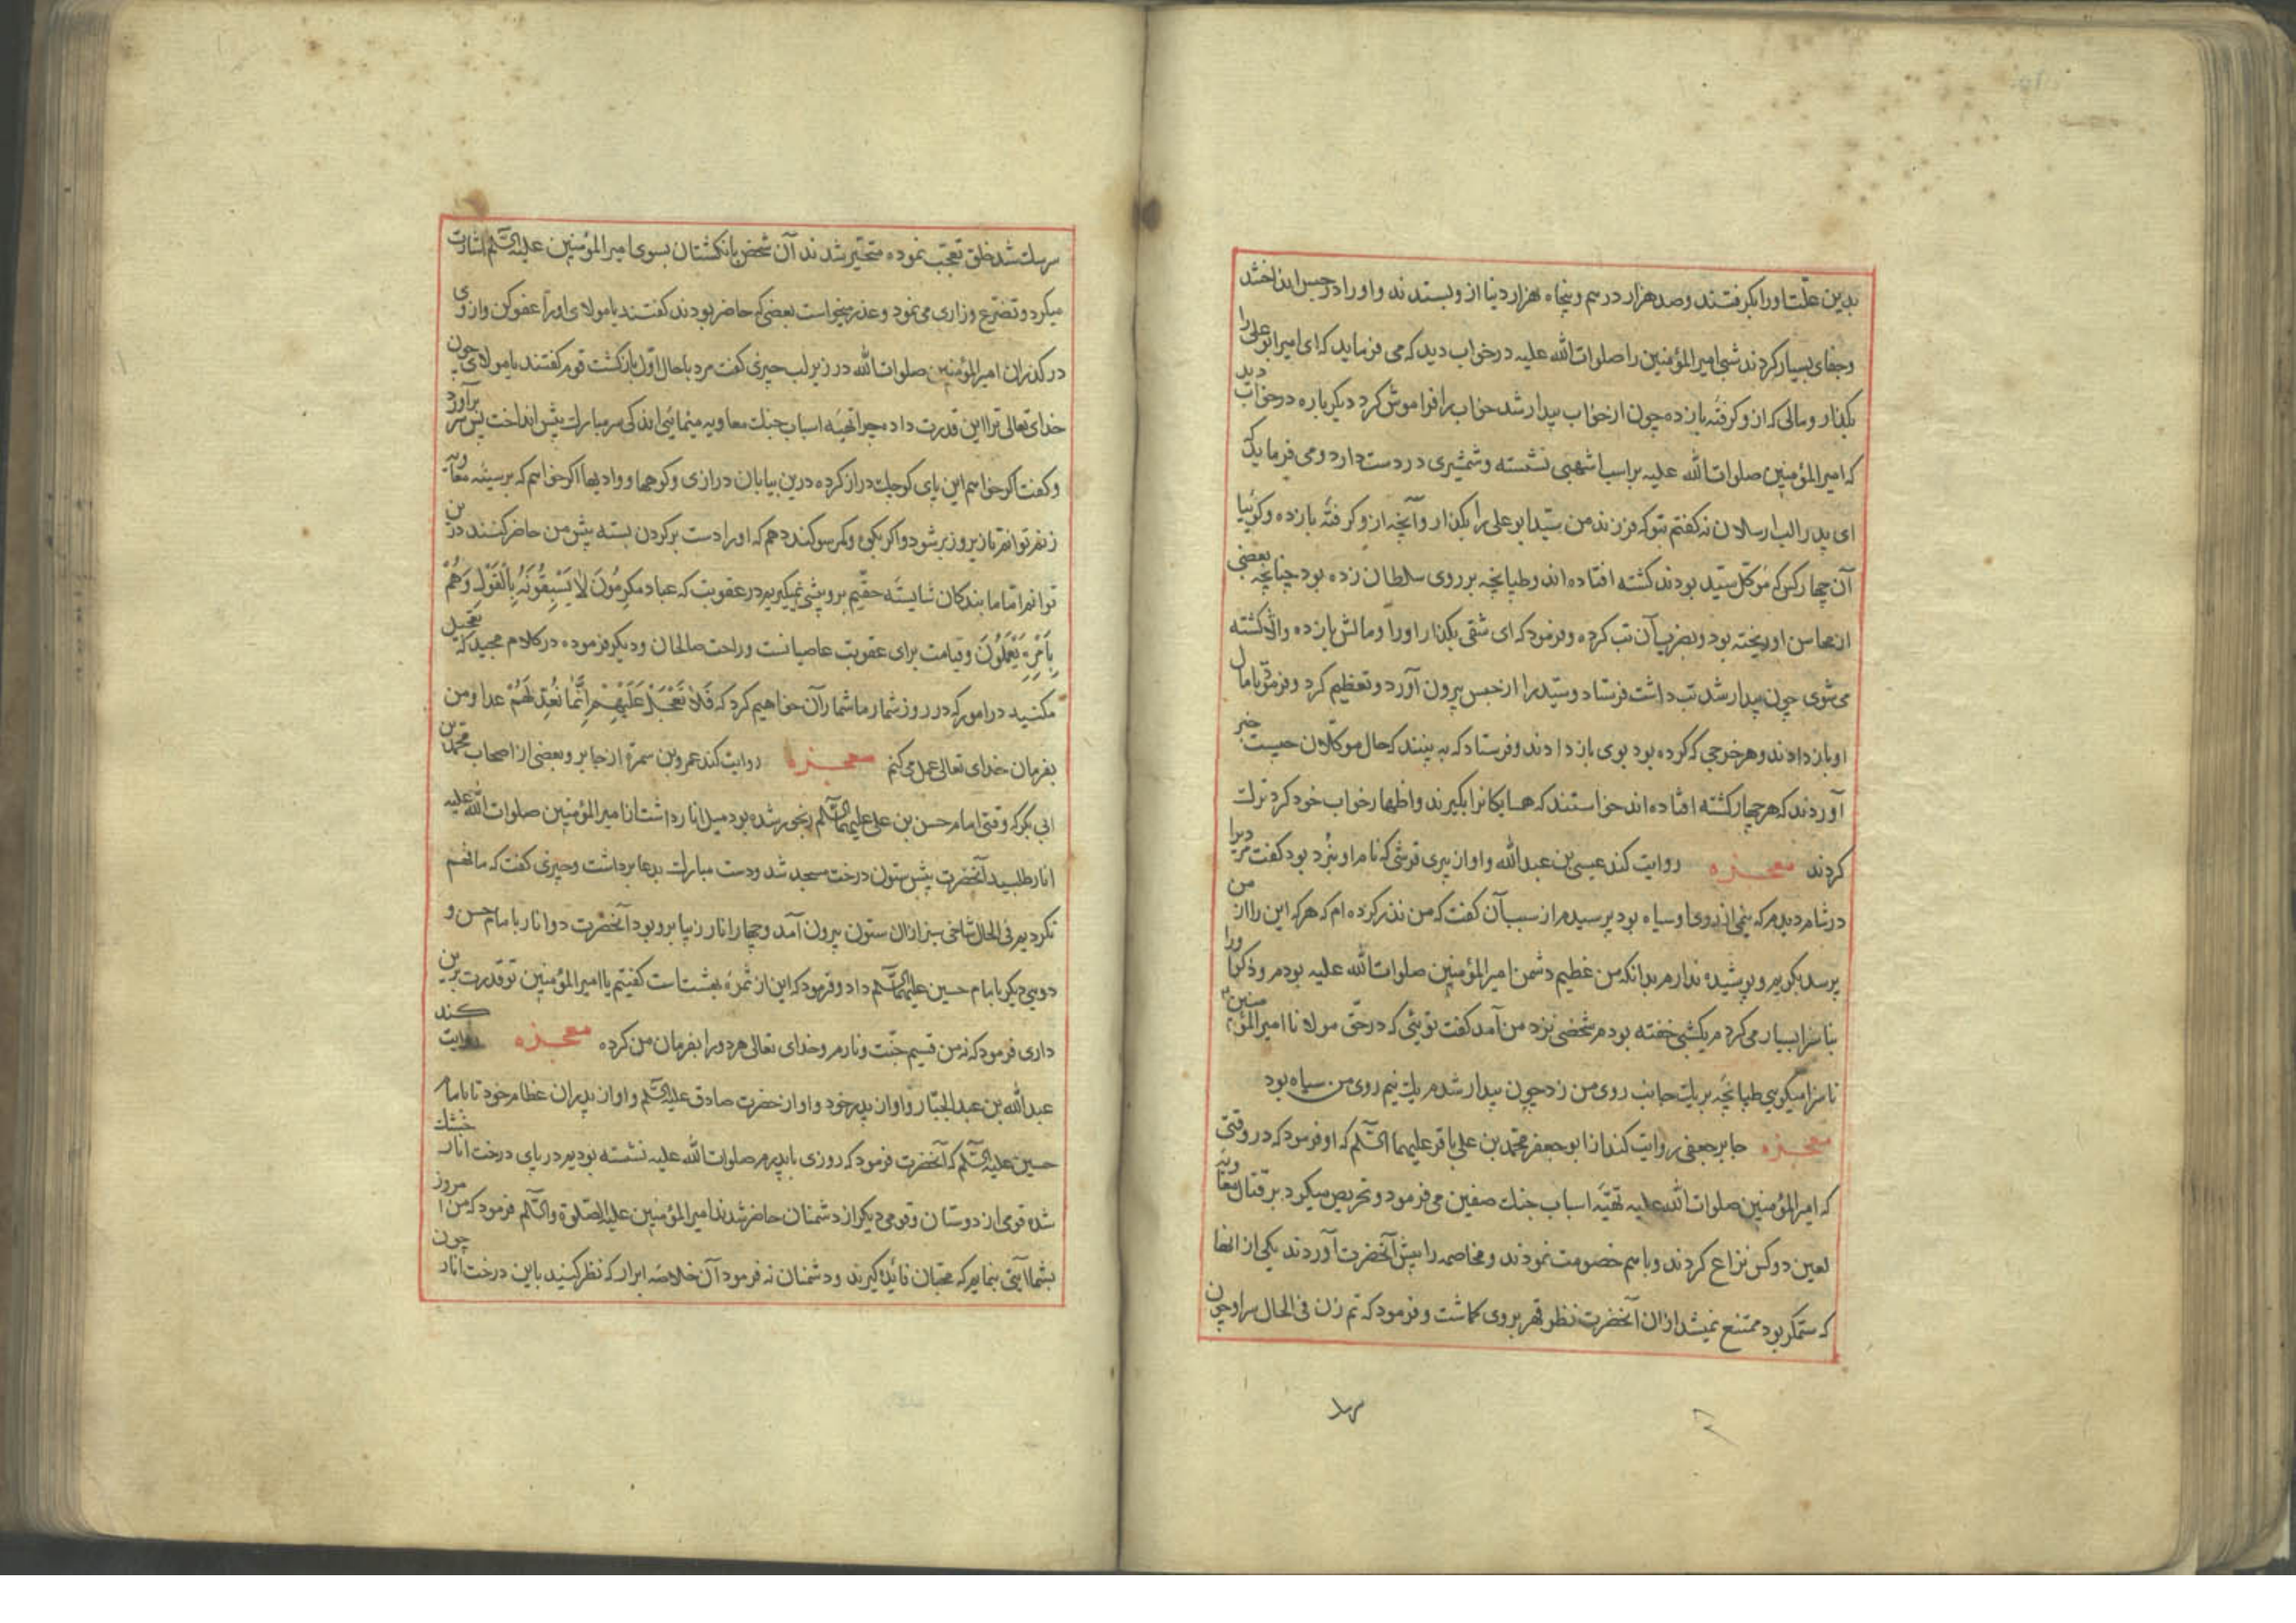 بدین علّت اورا بکرفتند و صد هزار درهم و پنجاه هزار دینار از و بستدند و اورا در حبس انداختند
و جفای بسیار کردند شبی امیرالمؤمنین را صلوات الله علیه در خواب دید که می فرماید که ای امیر ابو علی را
بکذار و مالی که ازو کرفته باز ده چون از خواب بیدار شد خواب را فراموش کرد دیکر باره در خواب دید
که امیرالمؤمنین صلوات الله علیه بر اسب اشهبی نشسته و شمشیری در دست دارد و می فرماید که
ای پدر الب ارسلان نه کفتم بتو که فرزند من سیّد ابو علی را بکذار و آنچه ازو کرفتهٔ باز ده و کوئیا
آن چهار کس که موکّل سیّد بودند کشته افتاده اند و طپانچه بر روی سلطان زده بود چنانچه بعضی
از محاسن او ریخته بود و بضرب آن تب کرده و فرمود که ای شقی بکذار اورا و مالش باز ده والّا کشته
می شوی چون بیدار شد تب داشت فرستاد و سیّد را از حبس بیرون آورد و تعظیم کرد و فرمود تا مال
او باز دادند و هر خرجی که کرده بود بوی باز دادند و فرستاد که به بینند که حال موکّلان چیست خبر
آوردند که هر چهار کشته افتاده اند خواستند که همسایکانرا بکیرند و اظهار خواب خود کرد ترک
کردند معجزه روایت کند عیسی بن عبدالله و او از پیری قرشی که نام او بود کفت مردیرا
در شام دیدم که نیمی از روی او سیاه بود پرسیدم از سبب آن کفت که من نذر کرده ام که هر که این را از من
پرسد بکویم و پوشیده ندارم بدانکه من عظیم دشمن امیرالمؤمنین صلوات الله علیه بودم و ذکر اورا
بناسزا بسیار می کردم یکشبی خفته بودم شخصی نزد من آمد کفت توئی که در حقّ مولانا امیرالمؤمنین
ناسزا میکویی طپانچه بر یک جانب روی من زد چون بیدار شدم یک نیم روی من سیاه بود
معجزه جابر جعفی روایت کند از ابو جعفر محمّد بن علی باقر علیهما السّلم که او فرمود که در وقتی
که امیرالمؤمنین صلوات الله علیه تهیّهٔ اسباب جنک صفین می فرمود و تحریص میکرد بر قتال معاویه
لعین دو کس نزاع کردند و با هم خصومت نمودند و مخاصمه را پیش آنحضرت آوردند یکی از انها
که ستمکر بود ممتنع نمیشد ازان آنحضرت نظر قهر بروی کماشت و فرمود که تم زن فی الحال سر او چون
سر سک شد خلق تعجّب نموده متحیّر شدند آن شخص بانکشتان بسوی امیرالمؤمنین علیه السّلم اشارت
میکرد و تضرّع و زاری می نمود و عذر میخواست بعضی که حاضر بودند کفتند یا مولای اورا عفو کن و از وی
در کذران امیرالمؤمنین صلوات الله در زیر لب چیزی کفت مرد باحال اوّل باز کشت قوم کفتند یا مولای چون
خدای تعالی ترا این قدرت داده چرا تهیّه اسباب جنک معاویه مینمائی اندکی سر مبارک پیش انداخت پس سر برآورد
و کفت اکر خواهم این پای کوچک دراز کرده درین بیابان درازی و کوهها و وادیها اکر خواهم که بر سینه معاویه
زنم توانم تا زیر و زبر شود و اکر بکویم و کر سوکند دهم که اورا دست بر کردن بسته پیش من حاضر کنند درین
توانم امّا ما بندکان شایسته حقّیم برو پیشی نمیکیریم در عقوبت که عباد مکرمُونَ لَا یَسْبِقُونَهُ بِالْقَوْلِ وَهُمْ
بِاَمْرِهِ یَعْمَلُونَ و قیامت برای عقوبت عاصیانست و راحت صالحان و دیکر فرموده در کلام مجید که تعجیل
مکنید در امور که در روز شمار ما شمار آن خواهیم کرد که فَلَا تَعْجَلْ عَلَیْهِمْ اِنَّمَا نُعِدّ لَهُمْ عدا و من
بفرمان خدای تعالی عمل می کنم معجزه روایت کند عمرو بن سمرة از جابر و بعضی از اصحاب محمّد بن
ابی بکر که وقتی امام حسن بن علی علیهما السّلم رنجور شده بود میل انار داشت از امیرالمؤمنین صلوات الله علیه
انار طلبید آنحضرت پیش ستون درخت مسجد شد و دست مبارک بدعا برداشت و چیزی کفت که ما فهم
نکردیم فی الحال شاخی سبز ازان ستون بیرون آمد و چهار انار زیبا برو بود آنحضرت دو انار با مام حسن و
دوی دیکر با مام حسین علیهما السّلم داد و فرمود که این از ثمرهٔ بهشتست کفتیم یا امیرالمؤمنین تو قدرت برین
داری فرمود که نه من قسیم جنّت و نارم و خدای تعالی هر دورا بفرمان من کرده معجزه روایت کند
عبدالله بن عبدالجبّار و او از پدر خود و او از حضرت صادق علیه السّلم و او از پدران عظام خود تا بامام
حسین علیه السّلم که آنحضرت فرمود که روزی با پدرم صلوات الله علیه نشسته بودیم در پای درخت انار خشک
شده قومی از دوستان و قومی دیکر از دشمنان حاضر شدند امیرالمؤمنین علیه الصّلوة والسّلم فرمود که من امروز
بشما آیتی بنمایم که محبّان فائده کیرند و دشمنان نه فرمود آن خلاصهٔ ابرار که نظر کنید باین درخت انار چون